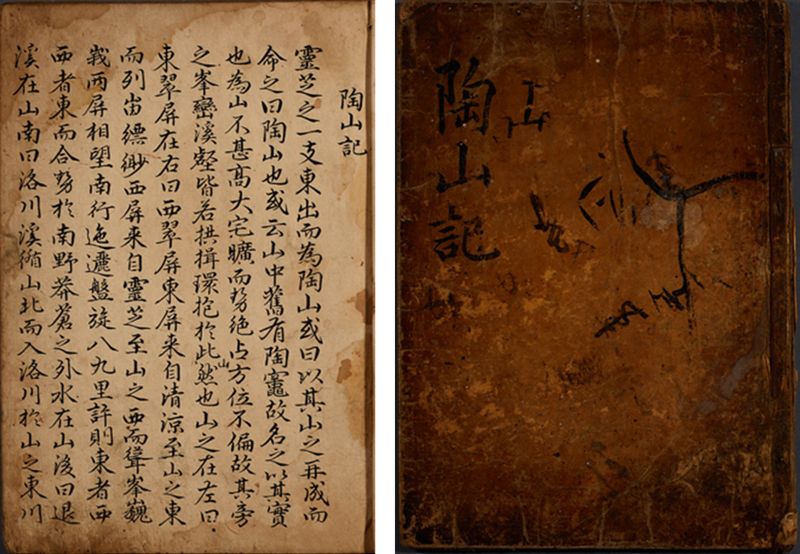 陶山記
靈芝之一支東出而為陶山或曰以其山之再成而
命之曰陶山也或云山中舊有陶竈故名之以其實
也為山不甚高大宅曠而勢絶占方位不偏故其旁
之峯巒溪壑皆若拱揖環抱於此山然也山之在左曰
東翠屏在右曰西翠屏東屏来自清凉至山之東
而列峀縹緲西屏来自靈芝至山之西而聳峯巍
峩兩屏相望南行迤邐盤旋八九里許則東者西
西者東而合勢於南野莽蒼之外水在山後曰退
溪在山南曰洛川溪循山北而入洛川於山之東川
陶山記